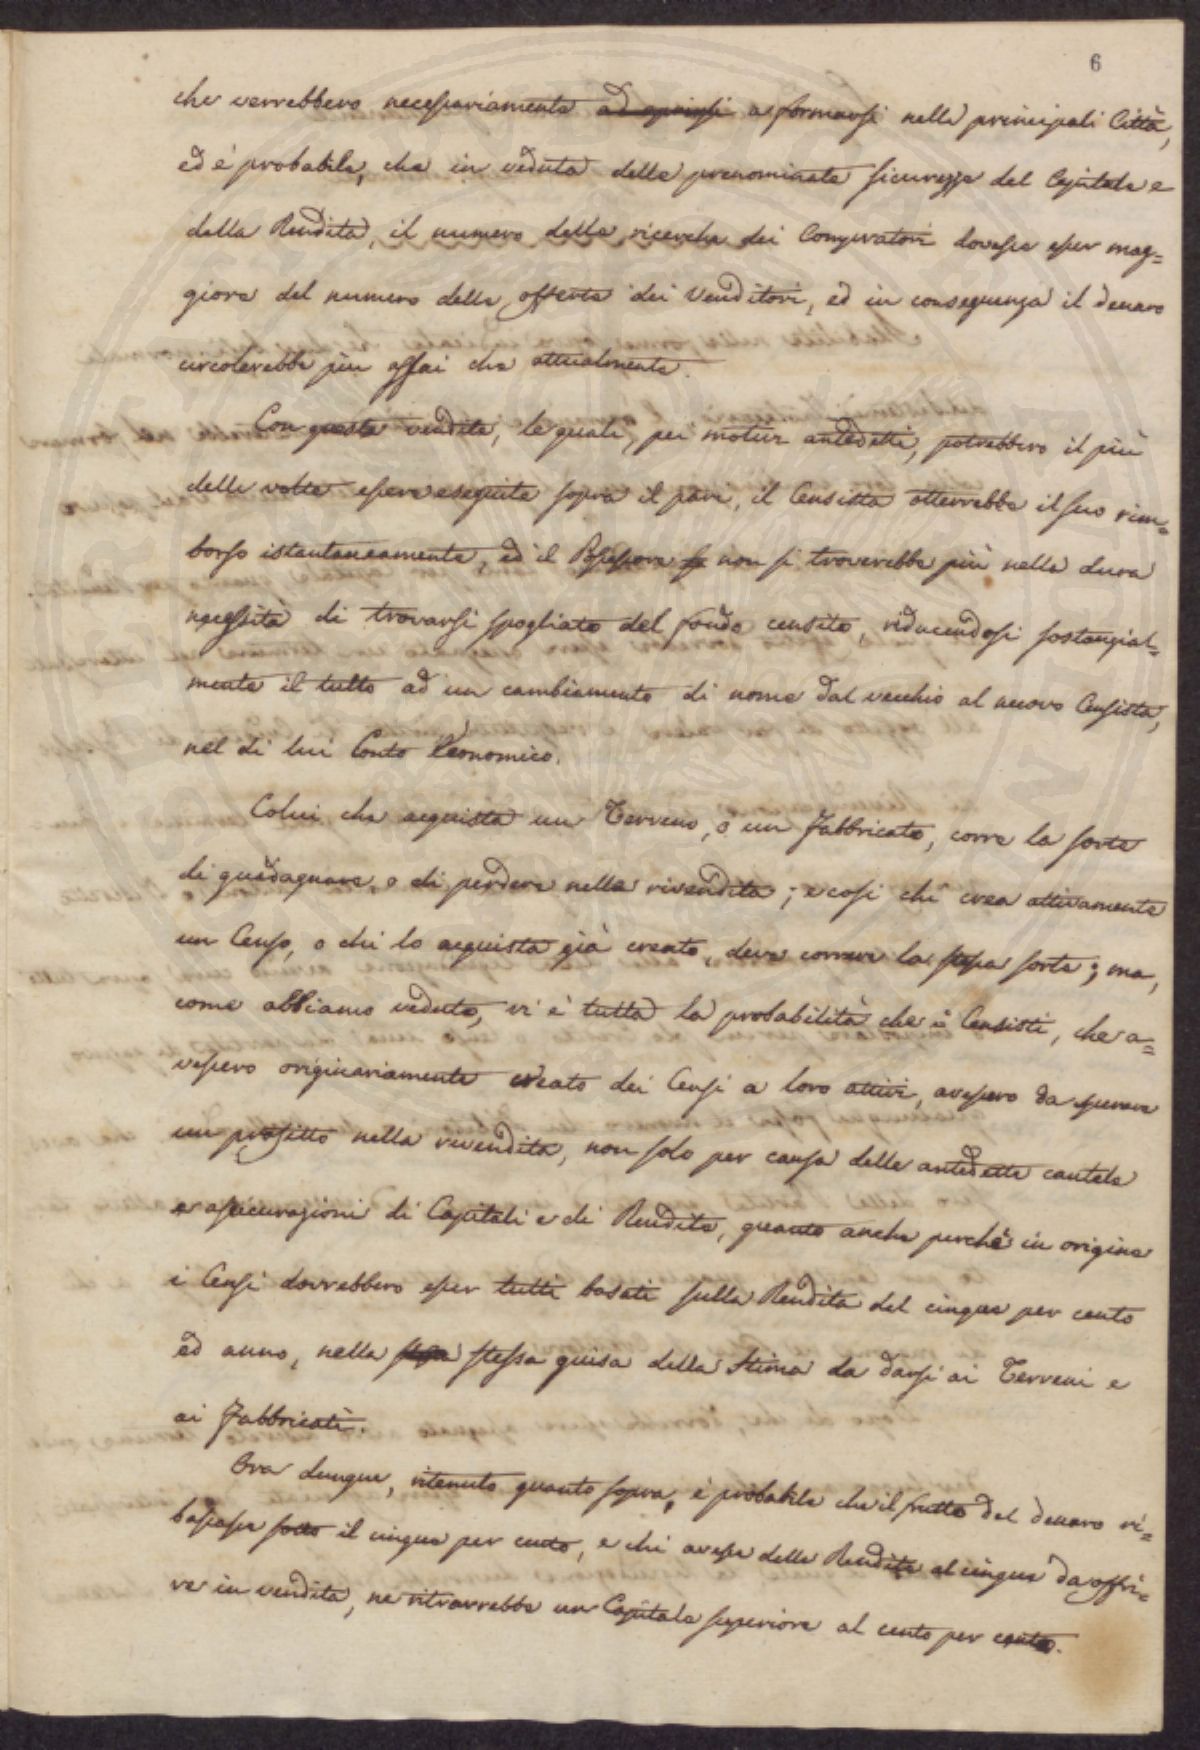 6
che verrebbero necessariamente ad aprirsi a formarsi nelle principali Città,
ed è probabile, che in veduta delle prenominate sicurezze del Capitale e
della Rendita, il numero delle ricerche dei Compratori dovesse esser mag=
giore del numero delle offerte dei Venditori, ed in conseguenza il denaro
circolerebbe più assai che attualmente.
Con queste vendite, le quali, pei motivi antedetti, potrebbero il più
delle volte essere eseguite sopra il pare, il Censista otterrebbe il suo rim=
borso istantaneamente, ed il Possessore non si troverebbe più nella dura
necessità di trovarsi spogliato del fondo censito, riducendosi sostanzial=
mente il tutto ad un cambiamento di nome dal vecchio al nuovo Censista,
nel di lui Conto Economico.
Colui che acquista un Terreno, o un Fabbricato, corre la sorte
di guadagnare, o di perdere nella rivendita; e così chi crea attivamente
un Censo, o chi lo acquista già creato, deve correre la stessa sorte; ma,
come abbiamo veduto, vi è tutta la probabilità che i Censisti, che a=
vessero originariamente creato dei Censi a loro attivi, avessero da sperare
un profitto nella rivendita, non solo per causa delle antedette cautele
e assicurazioni di Capitali e di Rendite, quanto anche perchè in origine
i Censi dovrebbero esser tutti basati sulla Rendita del cinque per cento
ed anno, nella stessa stessa guisa della Stima da darsi ai Terreni e
ai Fabbricati.
Ora dunque, ritenuto quanto sopra, è probabile che il frutto del denaro ri=
bassasse sotto il cinque per cento, e chi avesse delle Rendite al cinque da offri=
re in vendita, ne ritrarrebbe un Capitale superiore al cento per cento.